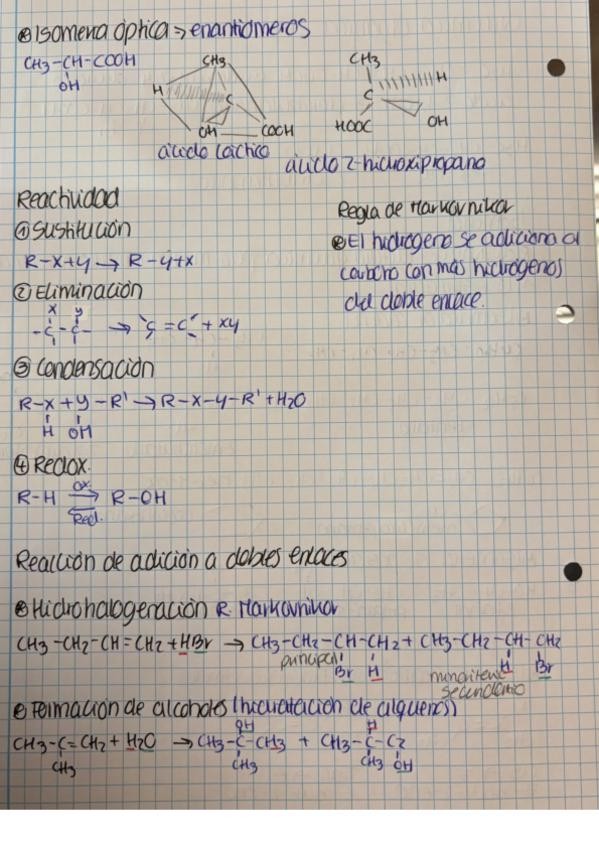 Isomería óptica => enantiómeros
CH3-CH-COOH
OH
CH3
H
C
OH
COOH
ácido láctico
CH3
H
C
HOOC
OH
ácido 2-hidroxipropano
Reactividad
① Sustitución
R-X+Y → R-Y+X
② Eliminación
X Y
-C-C- → C=C + XY
③ Condensación
R-X + Y-R' → R-X-Y-R' + H2O
H OH
④ Redox.
R-H ox. R-OH
Red.
Regla de Markovnikov
El hidrógeno se adiciona al
carbono con más hidrógenos
del doble enlace.
Reacción de adición a dobles enlaces
Hidrohalogenación R. Markovnikov
CH3-CH2-CH=CH2 + HBr → CH3-CH2-CH-CH2 + CH3-CH2-CH-CH2
principal Br H
H Br
secundario
Formación de alcoholes (hidratación de alquenos)
OH H
CH3-C=CH2 + H2O → CH3-C-CH3 + CH3-C-C2
CH3 CH3 CH3 OH